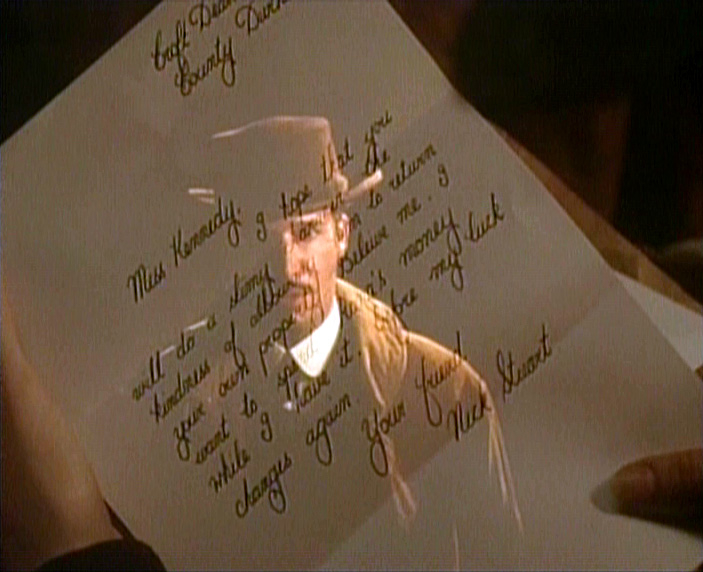 Croft Dean
County Durh
Miss Kennedy. I hope that you
will do a stony the
kindness of allowing to return
your own property. Believe me. I
want to spend money
while I have it. Before my luck
changes again.
Your friend
Nick Stuart